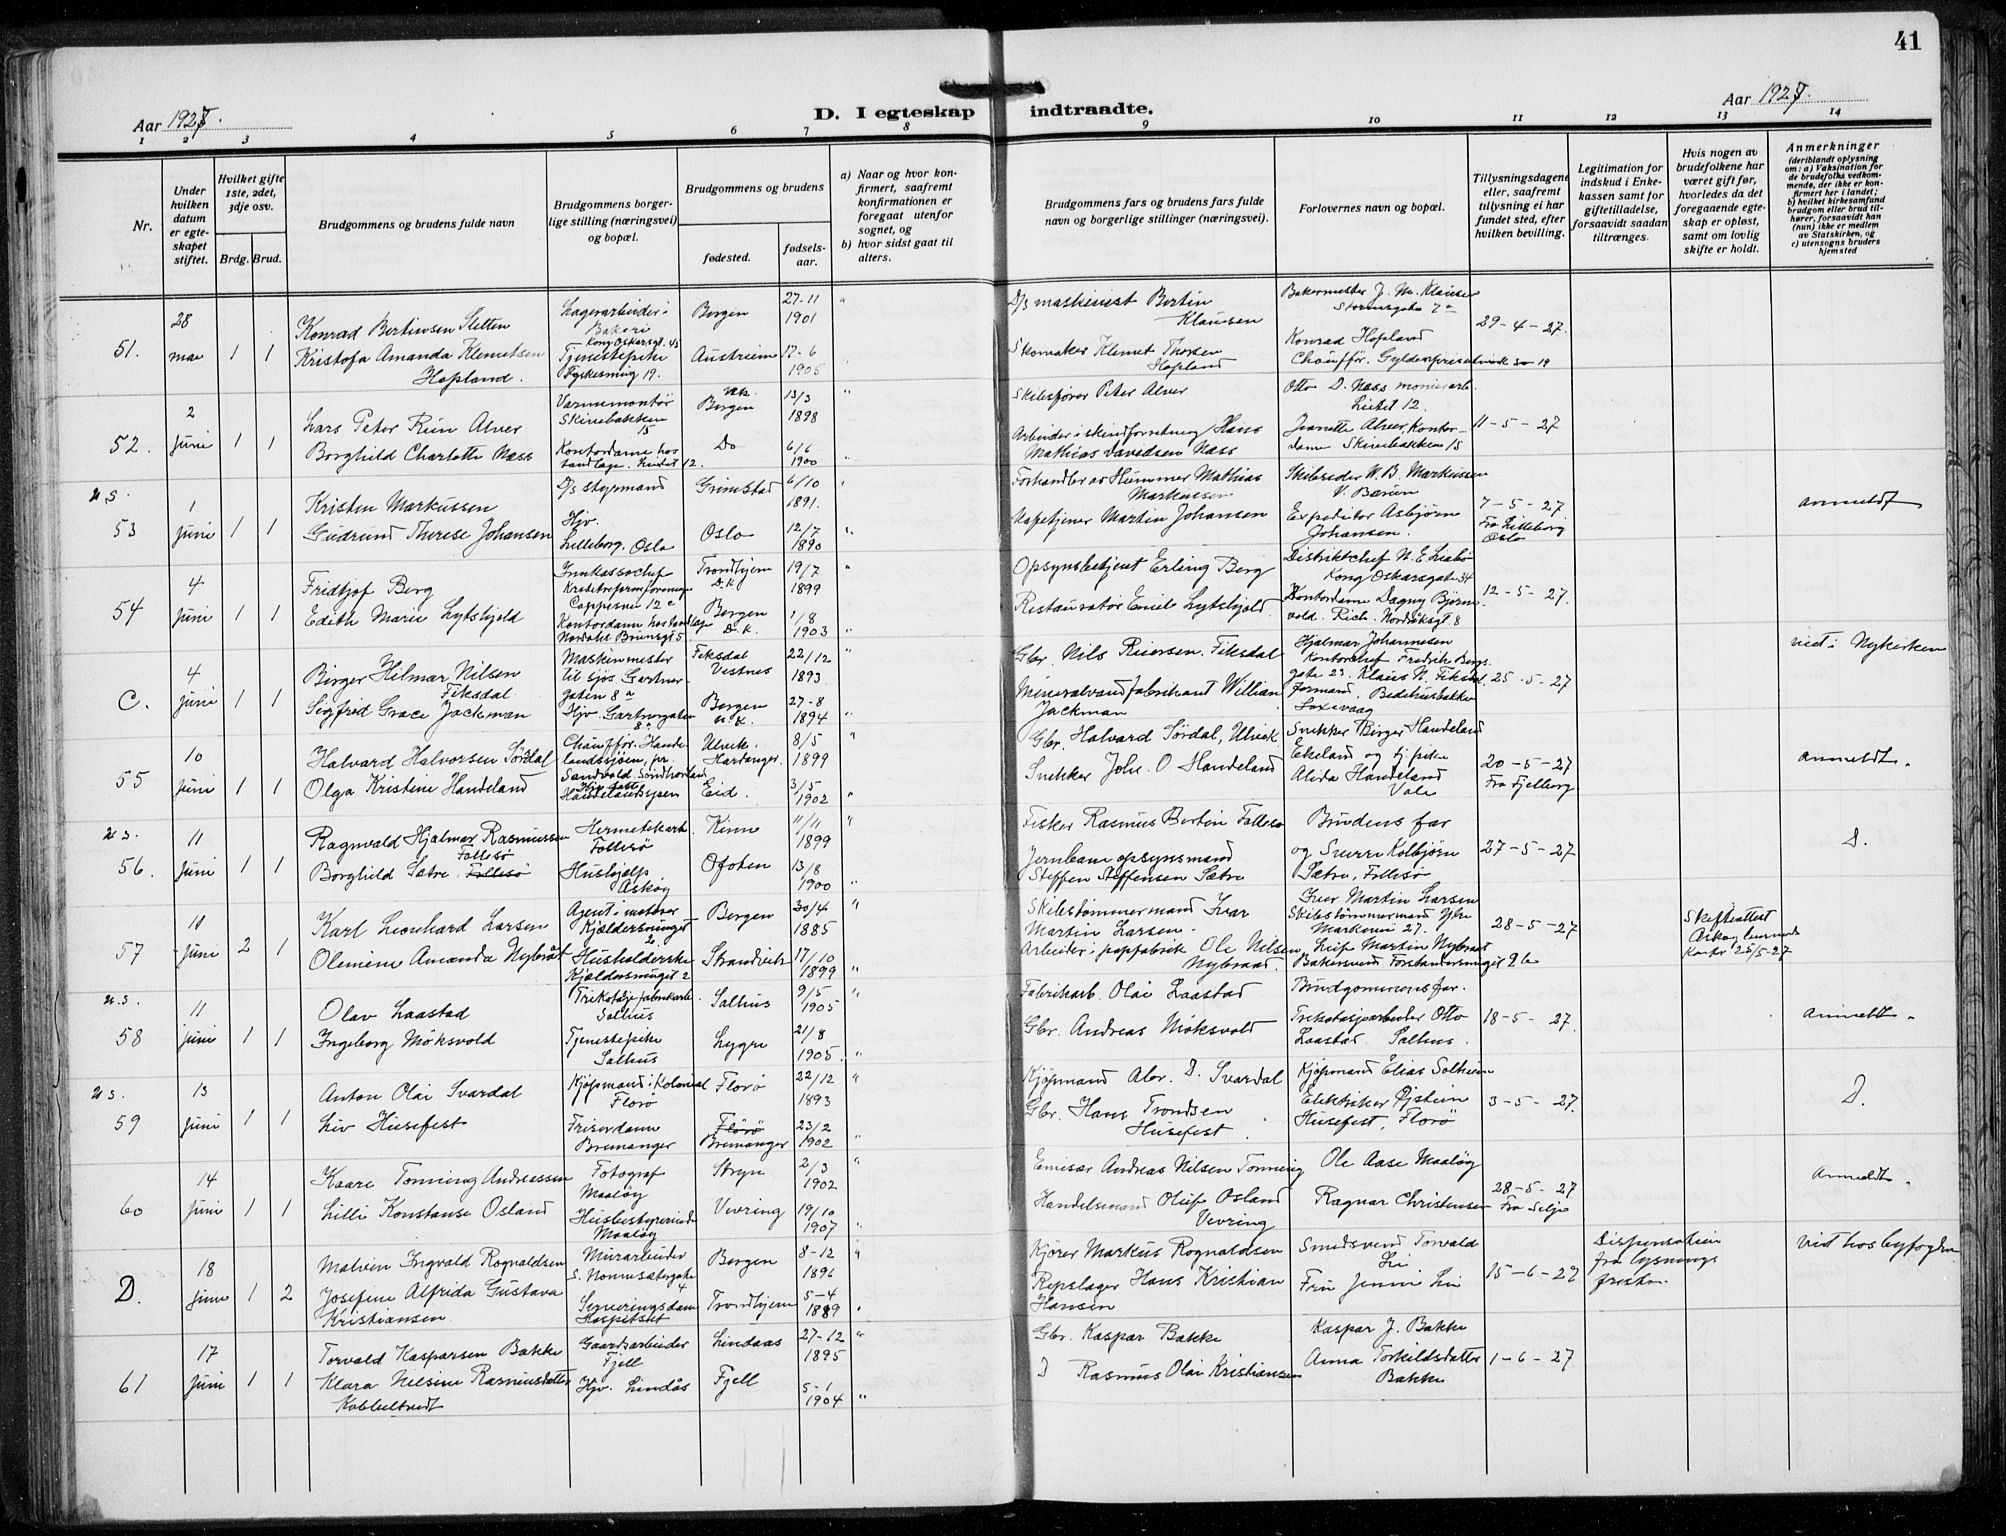 41
Aar 1927.
D. I egteskap indtraadte.
Aar 1927.
1 2 3 4 5 6 7 8 9 10 11 12 13 14
Nr.
Under hvilken datum er egteskapet stiftet.
Hvilket gifte 1ste, 2det, 3dje osv.
Brdg. Brud.
Brudgommens og brudens fulde navn
Brudgommens borgerlige stilling (næringsvei) og bopæl.
Brudgommens og brudens
fødested.
fødselsaar.
a) Naar og hvor konfirmert, saafremt konfirmationen er foregaat utenfor sognet, og
b) hvor sidst gaat til alters.
Brudgommens fars og brudens fars fulde navn og borgerlige stillinger (næringsvei).
Forlovernes navn og bopæl.
Tillysningsdagene eller, saafremt tillysning ei har fundet sted, efter hvilken bevilling.
Legitimation for indskud i Enkekassen samt for giftetilladelse, forsaavidt saadan tiltrænges.
Hvis nogen av brudefolkene har været gift før, hvorledes da det foregaaende egteskap er opløst, samt om lovlig skifte er holdt.
Anmerkninger
(deriblandt oplysning om: a) Vaksination for de brudefolks vedkommende, der ikke er konfirmert her i landet; b) hvilket kirkesamfund brudgom eller brud tilhører, forsaavidt han (hun) ikke er medlem av Statskirken, og c) utensogns bruders hjemsted
51. 28 mai 1 1
Konrad Bertinsen Sletten
Lagerarbeider i Bakeri Kong Oskarsgt. 45
Bergen 27-11 1901 "
D/s maskinist Bertin Klausen
Bakermester J. M. Klausen
29-4-27.
Kristofa Amanda Klemetsen Hopland.
Tjenestepike
Austrheim 17-6 1905
Skomaker Klemet Thorsen Hopland
Konrad Hopland Chauffør.
52. 2 Juni 1 1
Lars Peter Riim Alver
Varmemontør Skivebakken 15
Bergen 13/3 1898 "
Skibsfører Peter Alver
Otto D. Næss
Lietet 12.
11-5-27
Borghild Charlotte Næss
Kontordame hos tandlæge. Lietet 12.
Do 6/6 1900 "
Arbeider i skindforretning Hans Mathias Davidsen Næss
Jeanette Alver, Kontordame Skivebakken 15
u.s.
53 1 Juni 1 1
Kristen Markussen
D/s styrmand
Grimstad 6/10 1891. "
Forhandler av Hummer Mathias Markussen
Skibsreder W. B. Markussen V. Bærum
7-5-27
Fra Lilleborg Oslo
anmeldt
Gudrund Therese Johansen
Hjv. Lilleborg. Oslo
Oslo 12/7 1890 "
Martin Johansen
Expeditør Asbjørn Johansen.
54 4 Juni 1 1
Fridtjof Berg
Innkassochef Kreditreformforeningen Cappesmu 12 c
Trondhjem D.K. 19/7 1899 "
Opsynsbetjent Erling Berg
Distriktschef N. E. Liabø Kong Oskarsgate 34
12-5-27.
Edith Marie Lytshjold
Kontordame hos tandlæge Nordahl Brunsgt 5
Bergen D.K. 1/8 1903 "
Restauratør Emil Lytshjold
Kontordame Dagny Bjørnvold. Rich. Nordraksgt 8
C. 4 Juni 1 1
Birger Hilmar Nilsen Fiksdal
Maskinmester til sjøs Gartnergaten 8 a
Fiksdal Vestnes 22/12 1893 "
Gbr. Nils Reiersen Fiksdal
Hjalmar Johannesen Kontorchef Fredrik Bergs gate 23.
25-5-27
viet i Nykirken
Sigfrid Grace Jackman
Hjv. Gartnergaten 8 a
Bergen N.K. 27-8 1894 "
Mineralvandfabrikant William Jackman
Klaus N. Fiksdal formand. Bedehusbakken Laxevaag
55 10 Juni 1 1
Halvard Halvorsen Sørdal
Chauffør. Handelandssjøen, pr. Sandvold Søndhordland
Ulvik. Hardanger. 8/5 1899 "
Gbr. Halvard Sørdal, Ulvik
Snekker Birger Handeland Eikeland
20-5-27
Fra Fjelberg
anmeldt.
Olga Kristine Handeland
Handelandssjøen
Eid. 3/5 1902 "
Snekker Joh. O Handeland
og tj.pike Alida Handeland Vale
u.s.
56. 11 Juni 1 1
Ragnvald Hjalmar Rasmussen Follesø
Hermetikarb. Follesø
Kinn 11/11 1899 "
Fisker Rasmus Bertin Follesø
Brudens far
27-5-27
D.
Borghild Sætre Follesø
Hushjelp Askøy
Ofoten 13/8 1900 "
Jernbaneopsynsmand Steffen Steffensen Sætre
og Sverre Kolbjørn Sætre, Follesø
57 10 Juni 2 1
Karl Leonhard Larsen
Agent i motorer Kjeldersmuget 2
Bergen 30/4 1885 "
Skibstømmermand Ivar Martin Larsen.
Iver Martin Larsen Skibstømmermand Ytre Markevei 27.
28-5-27
Skifteattest Askøy lensmandskontor 25/5-27
Olemine Amanda Nybråt
Husholderske Kjeldersmuget 2
Strandvik 17/10 1899 "
Arbeider i papfabrik Ole Nilsen Nybraad.
Leif Martin Nybraat Bakersvend. Forstandersmuget 9 b
u.s.
58 11 Juni 1 1
Olav Laastad
Trikotasjefabrikarb. Salhus
Salhus 9/5 1905 "
Fabrikarb. Olai Laastad
Brudgommens far.
18-5-27.
anmeldt.
Ingeborg Møksvold
Tjenestepike Salhus
Lygre 21/8 1905. "
Gbr. Andreas Møksvold
Trikotasjearbeider Otto Laastad Salhus.
u.s.
59 13 Juni 1 1
Anton Olai Svardal
Kjøpmand i Kolonial Florø
Florø 22/12 1893 "
Kjøpmand Abr. D. Svardal
Kjøpmand Elias Solheim
3-5-27.
D.
Liv Husefest
Frisørdame Bremanger
Florø Bremanger 23/2 1902 "
Gbr. Hans Trondsen Husefest
Elektriker Øistein Husefest, Florø
60 14 Juni 1 1
Kaare Tonning Andreassen
Fotograf Maaløy
Stryn 2/3 1902 "
Emisær Andreas Nilsen Tonning
Ole Aase Maaløy
28-5-27
Fra Selje
Anmeldt.
Lilli Konstanse Osland
Husbestyrerinde Maaløy
Vevring 19/10 1907 "
Handelsmand Oluf Osland Vevring
Ragnar Christensen
D. 18 Juni 1 2
Malvin Ingvald Rognaldsen
Murarbeider S. Nonnesætergate 4
Bergen 8-12 1896 "
Kjører Markus Rognaldsen
Smedsvend Torvald Lie
15-6-27
Dispensation fra lysningsfristen.
viet hos byfogden
Josefine Alfrida Gustava Kristiansen
Serveringsdame Hospitstet
Trondhjem 5-4 1889 "
Repslager Hans Kristian Hansen
Fru Jenni Lie
61 17 Juni 1 1
Torvald Kasparsen Bakke
Gaardsarbeider Fjell
Lindaas 27-12 1895 "
Gbr. Kaspar Bakke
Kaspar J. Bakke
1-6-27
Klara Nilsine Rasmusdatter Kobbeltvedt
Hjv. Lindås
Fjell 5-1 1904 "
D Rasmus Olai Kristiansen
Anna Torkildsdatter Bakke